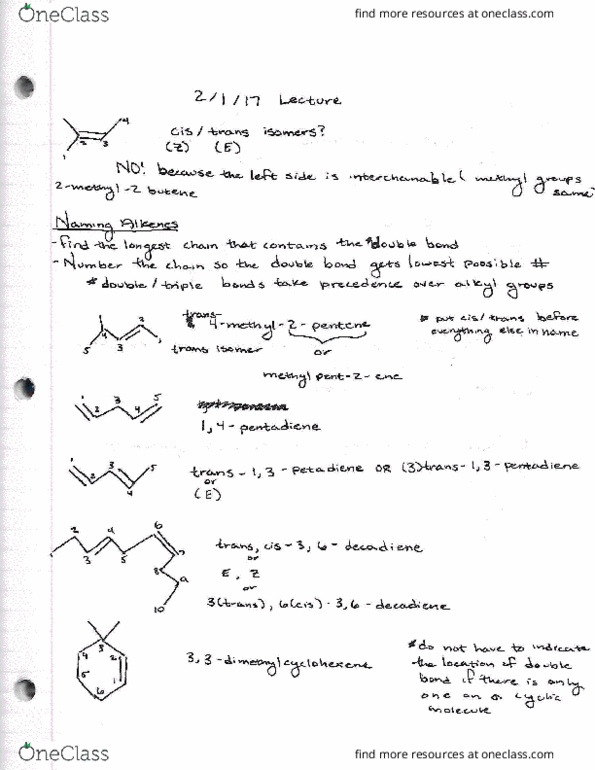 OneClass
find more resources at oneclass.com
2/1/17 Lecture
1 2 3 4
cis/trans isomers?
(Z) (E)
NO! because the left side is interchanable (methyl groups same
2-methyl-2 butene
Naming Alkenes
- Find the longest chain that contains the double bond
- Number the chain so the double bond gets lowest possible #
* double/triple bonds take precedence over alkyl groups
trans-
4-methyl-2-pentene
* put cis/trans before
everything else in name
5 4 3 2 1
trans isomer
or
methyl pent-2-ene
1 2 3 4 5
1,4-pentadiene
1 2 3 4 5
trans-1,3-petadiene OR (3)trans-1,3-pentadiene
or
(E)
1 2 3 4 5 6 7 8 9 10
trans, cis-3,6-decadiene
or
E, Z
or
3(trans), 6(cis)-3,6-decadiene
1 2 3 4 5 6
3,3-dimethylcyclohexene
* do not have to indicate
the location of double
bond if there is only
one on a cyclic
molecule
OneClass
find more resources at oneclass.com